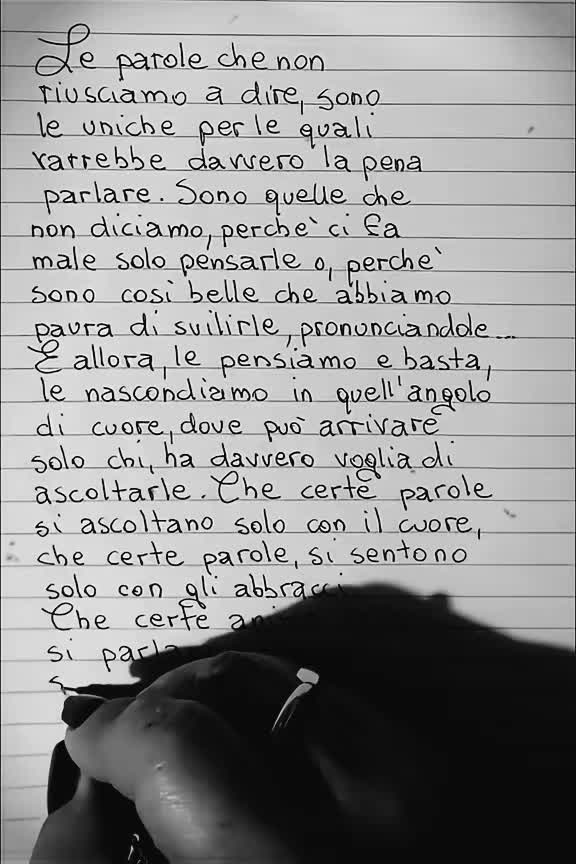 Le parole che non
riusciamo a dire, sono
le uniche per le quali
varrebbe davvero la pena
parlare. Sono quelle che
non diciamo, perche` ci fa
male solo pensarle o, perche`
sono così belle che abbiamo
paura di svilirle, pronunciandole...
E allora, le pensiamo e basta,
le nascondiamo in quell'angolo
di cuore, dove può arrivare
solo chi, ha davvero voglia di
ascoltarle. Che certe parole
si ascoltano solo con il cuore,
che certe parole, si sentono
solo con gli abbracci
Che certe
si